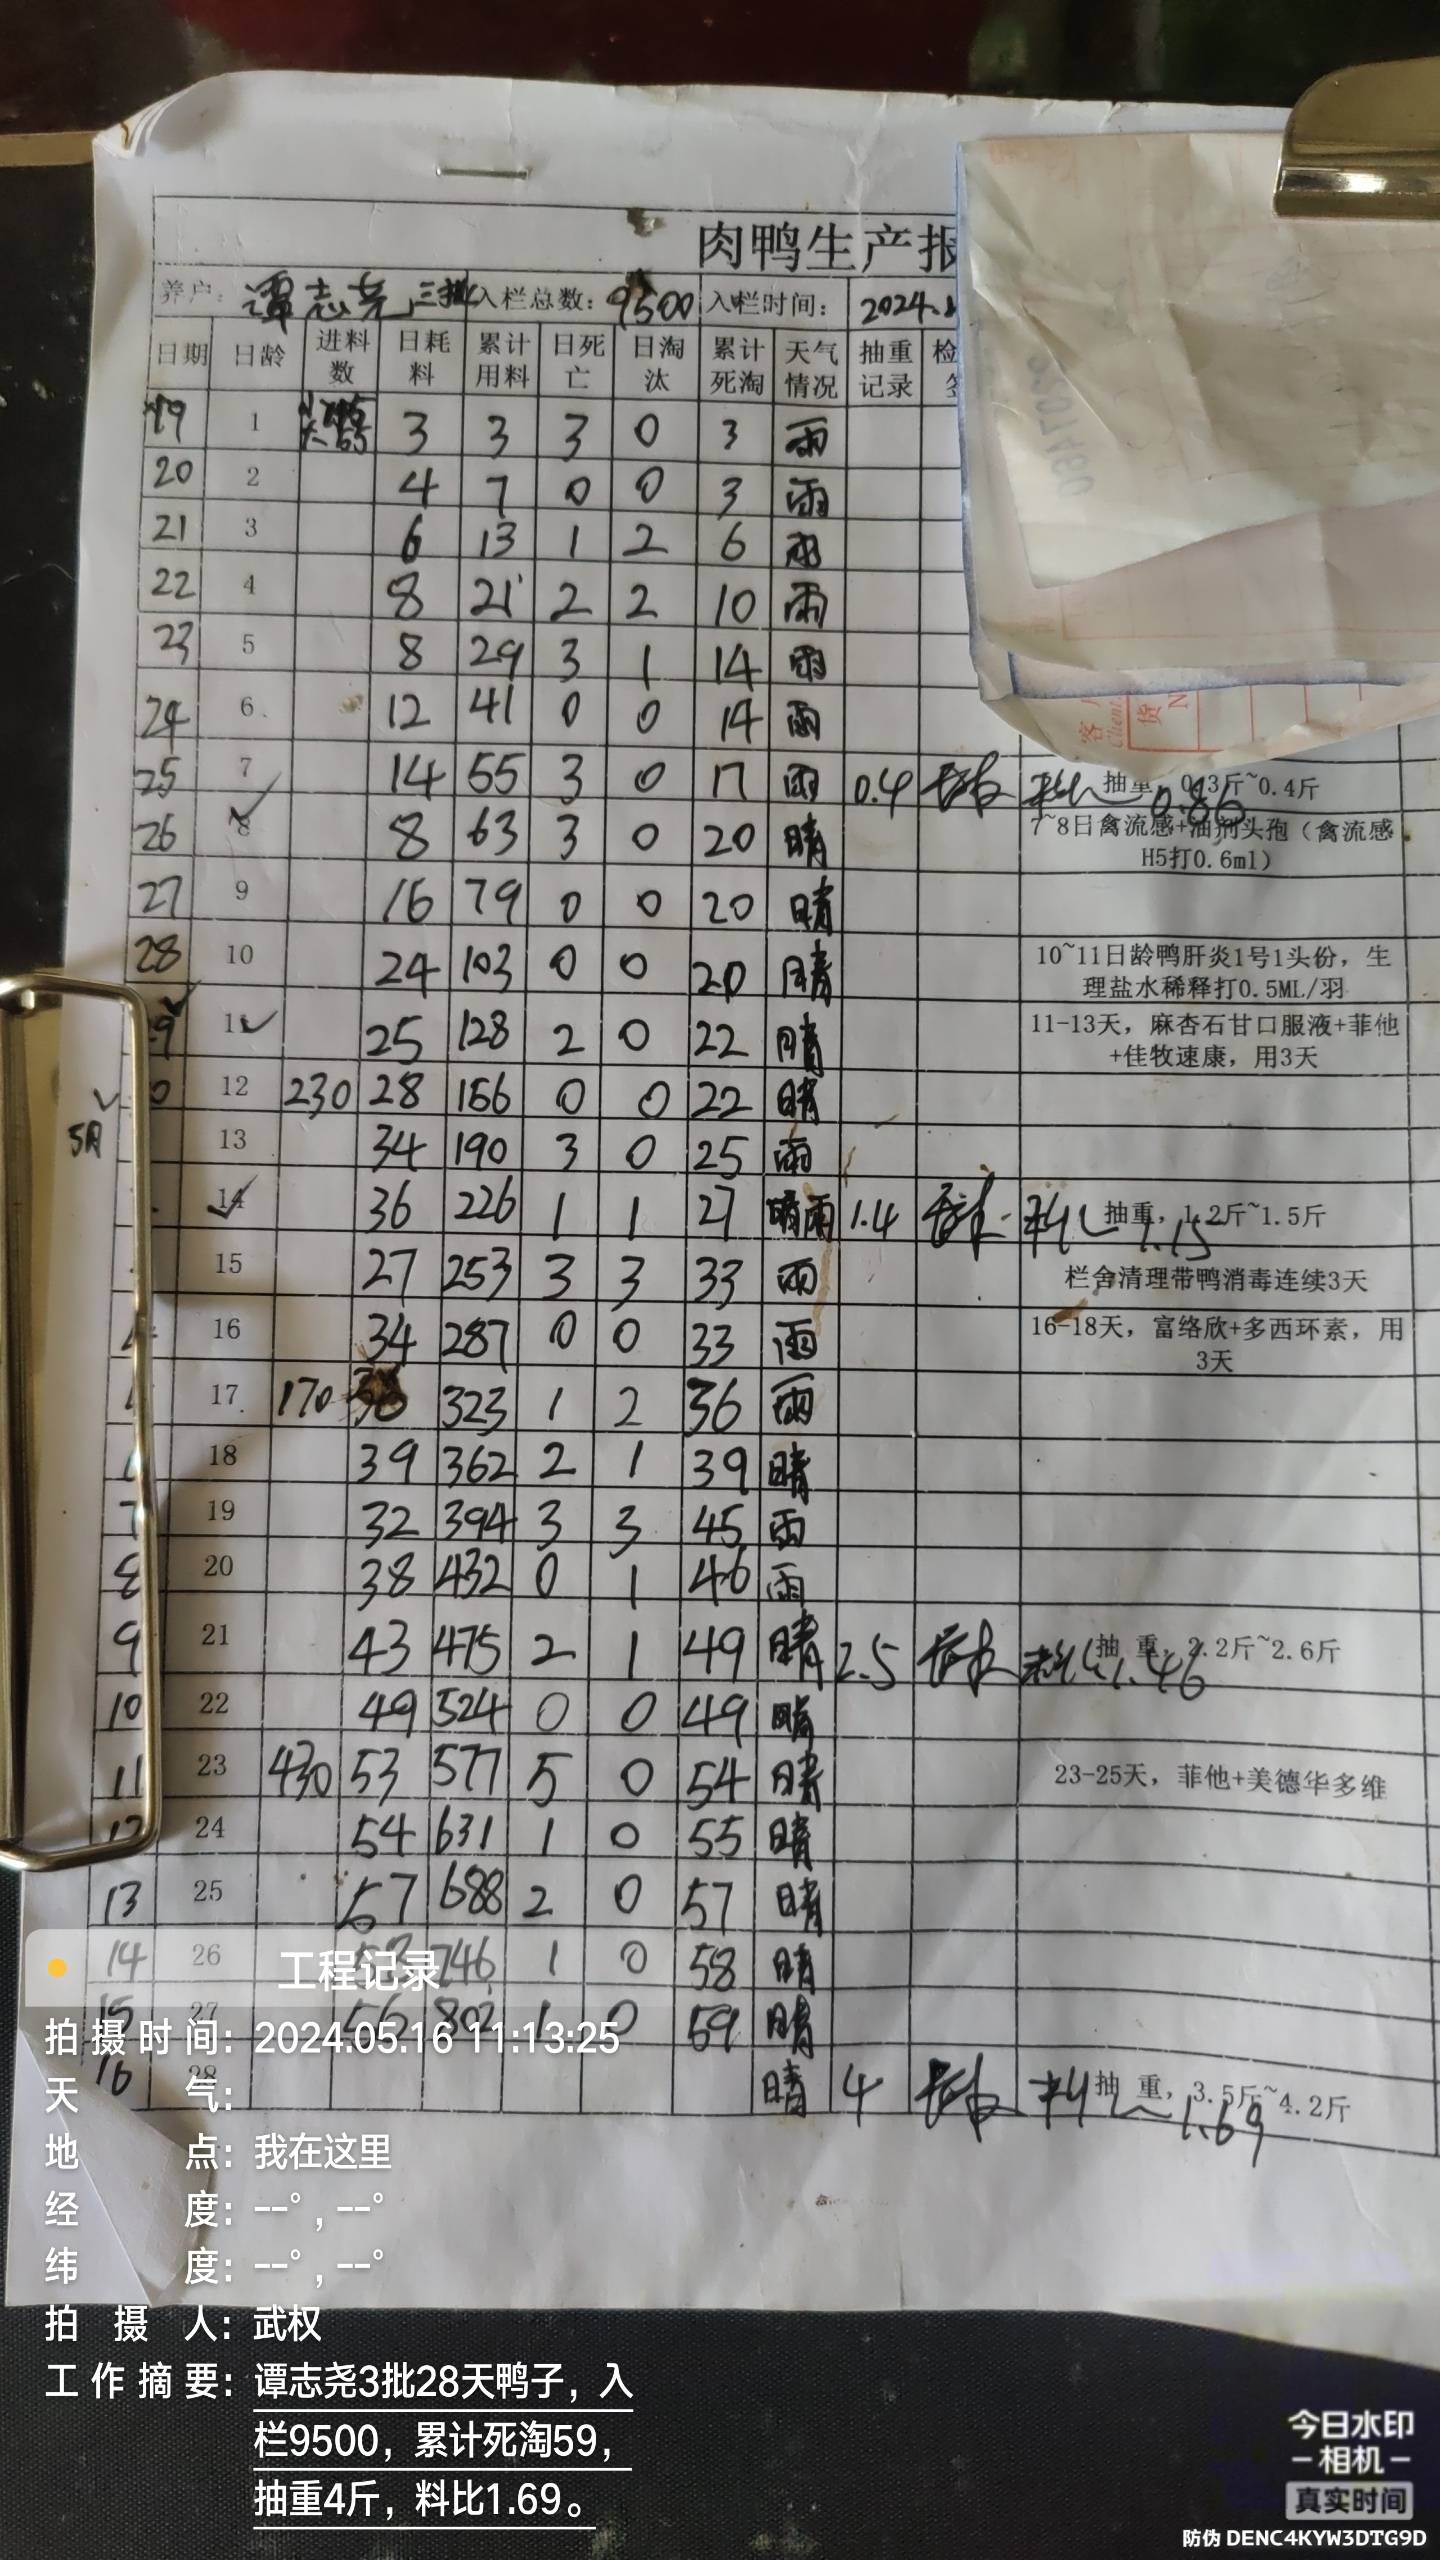 肉鸭生产报
养户: 谭志尧 三批 入栏总数: 9500 入栏时间: 2024.
日期 日龄 进料数 日耗料 累计用料 日死亡 日淘汰 累计死淘 天气情况 抽重记录 检
19 1 3 3 3 0 3 雨
20 2 4 7 0 0 3 雨
21 3 6 13 1 2 6 雨
22 4 8 21 2 2 10 雨
23 5 8 29 3 1 14 雨
24 6 12 41 0 0 14 雨
25 7 14 55 3 0 17 雨 0.4 料比 0.86 抽重, 0.3斤~0.4斤
26 8 8 63 3 0 20 晴 7~8日禽流感+油剂头孢（禽流感
H5打0.6ml）
27 9 16 79 0 0 20 晴
28 10 24 103 0 0 20 晴 10~11日龄鸭肝炎1号1头份，生
理盐水稀释打0.5ML/羽
29 11 25 128 2 0 22 晴 11-13天，麻杏石甘口服液+菲他
+佳牧速康，用3天
0 12 230 28 156 0 0 22 晴
5月
13 34 190 3 0 25 雨
14 36 226 1 1 27 晴雨 1.4 料比 1.15 抽重，1.2斤~1.5斤
15 27 253 3 3 33 雨 栏舍清理带鸭消毒连续3天
16 34 287 0 0 33 雨 16-18天，富络欣+多西环素，用
3天
17 170 36 323 1 2 36 雨
18 39 362 2 1 39 晴
7 19 32 394 3 3 45 雨
8 20 38 432 0 1 46 雨
9 21 43 475 2 1 49 晴 2.5 料比 1.46 抽 重，2.2斤~2.6斤
10 22 49 524 0 0 49 晴
11 23 430 53 577 5 0 54 晴 23-25天，菲他+美德华多维
12 24 54 631 1 0 55 晴
13 25 57 688 2 0 57 晴
14 26 58 746 1 0 58 晴
15 27 56 802 1 0 59 晴
16 28 晴 4 料比 1.69 抽 重，3.5斤~4.2斤
客户
Client
货
N
工程记录
拍摄时间: 2024.05.16 11:13:25
天气:
地点: 我在这里
经度: --°, --°
纬度: --°, --°
拍摄人: 武权
工作摘要: 谭志尧3批28天鸭子，入
栏9500，累计死淘59，
抽重4斤，料比1.69。
今日水印
-相机-
真实时间
防伪 DENC4KYW3DTG9D